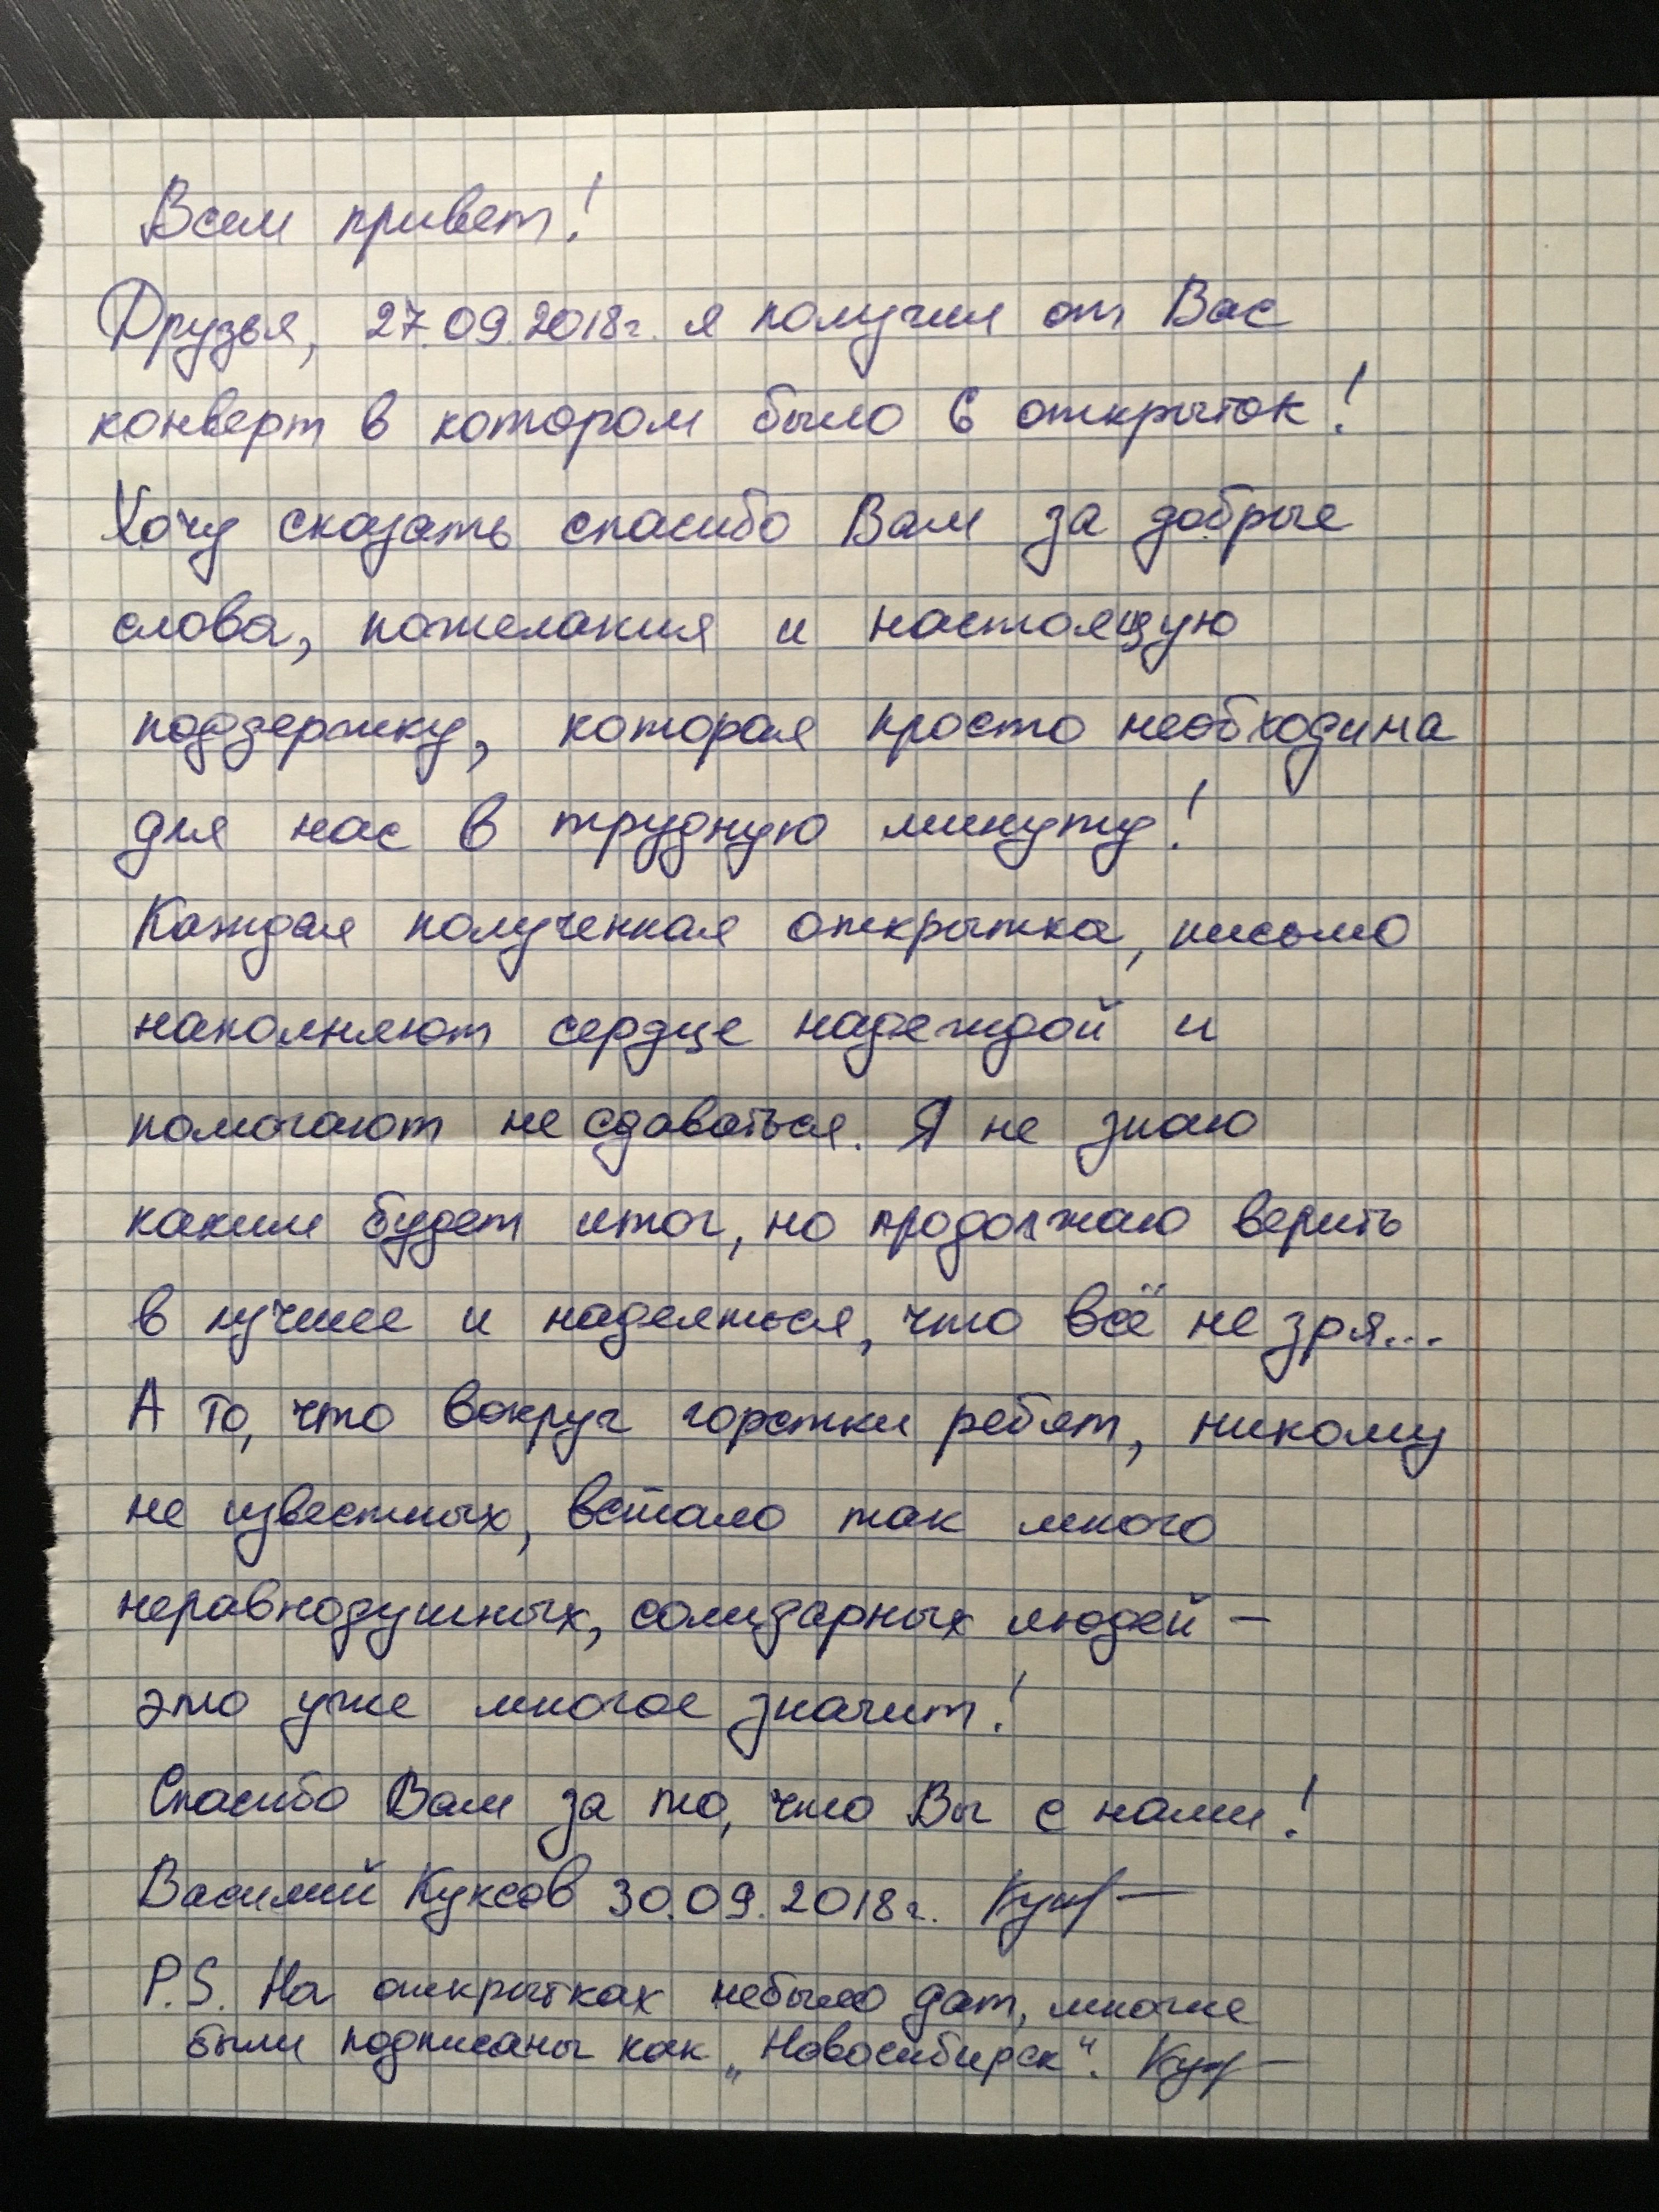 Всем привет!
Друзья, 27.09.2018г. я получил от Вас
конверт в котором было 6 открыток!
Хочу сказать спасибо Вам за добрые
слова, пожелания и настоящую
поддержку, которая просто необходима
для нас в трудную минуту!
Каждая полученная открытка, письмо
наполняют сердце надеждой и
помогают не сдаваться. Я не знаю
каким будет итог, но продолжаю верить
в лучшее и надеяться, что всё не зря...
А то, что вокруг горстки ребят, никому
не известных, встало так много
неравнодушных, солидарных людей –
это уже многое значит!
Спасибо Вам за то, что Вы с нами!
Василий Куксов 30.09.2018г.
P.S. На открытках небыло дат, многие
были подписаны как „Новосибирск“.